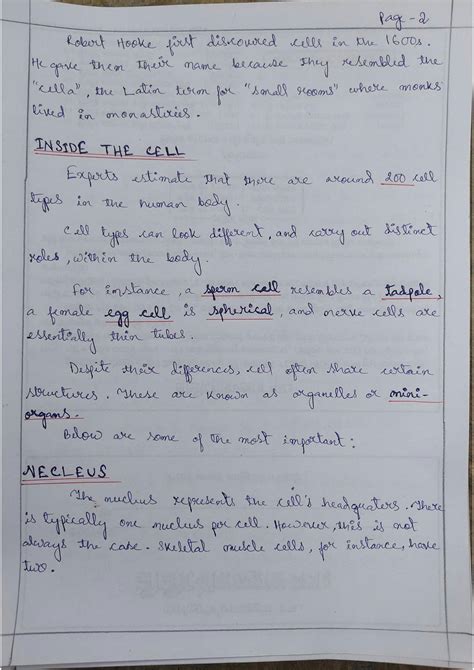 Page - 2
Robert Hooke first discoured cells in the 1600s.
He gave them their name because they resembled the
"cella", the Latin term for "small rooms" where monks
lived in monasteries.
INSIDE THE CELL
Experts estimate that there are around 200 cell
types in the human body.
Cell types can look different, and carry out distinct
roles, within the body.
For instance, a sperm cell resembles a tadpole,
a female egg cell is spherical, and nerve cells are
essentially thin tubes.
Despite their differences, cell often share certain
structures. These are known as organelles or mini-
organs.
Below are some of the most important:
NECLEUS
The nucleus represents the cell's headquaters. There
is typically one nucleus per cell. However, this is not
always the case. Skeletal muscle cells, for instance, have
two.